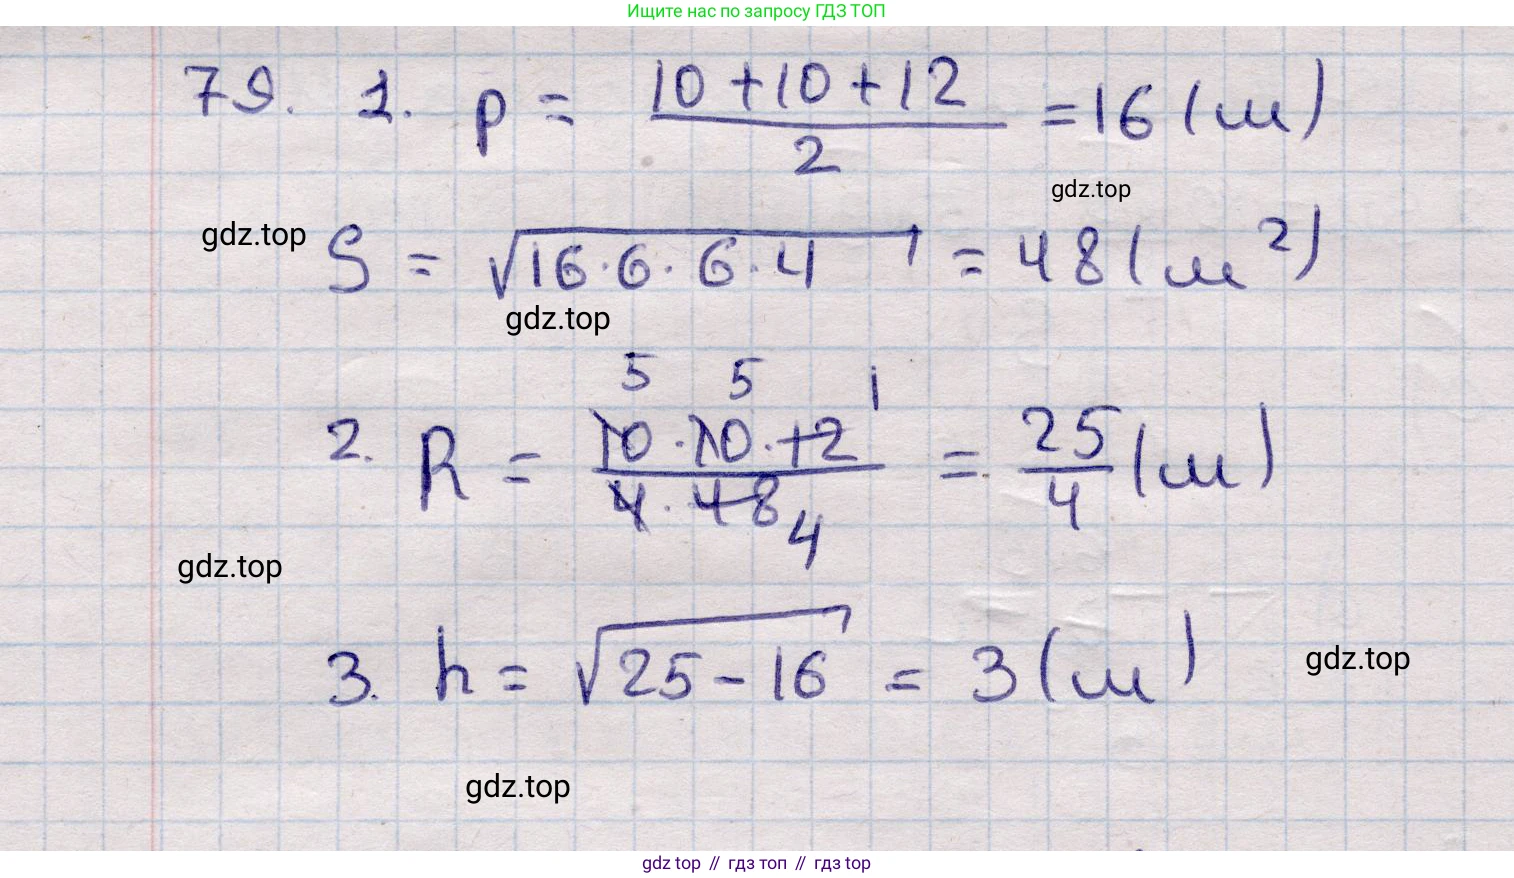 Ищите нас по запросу ГДЗ ТОП
79. 1. p = (10 + 10 + 12)/2 = 16 (м)
gdz.top
gdz.top
S = √(16·6·6·4) = 48 (м²)
gdz.top
5 5 1
2. R = (10·10·12)/(4·48) = 25/4 (м)
4
gdz.top
3. h = √(25 - 16) = 3 (м)
gdz.top
gdz.top
gdz top // гдз топ // гдз top